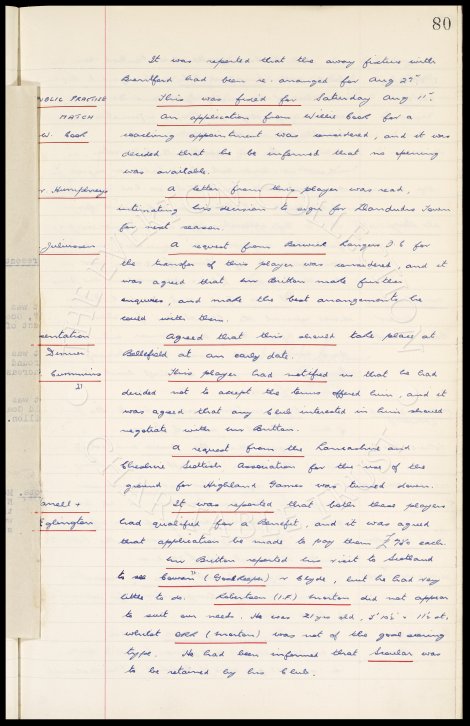 80
It was reported that the away fixture with
Brentford had been re-arranged for Aug 27th
PUBLIC PRACTISE
MATCH
This was fixed for Saturday Aug 11th.
W. Cook
An application from Willie Cook for a
coaching appointment was considered, and it was
decided that he be informed that no opening
was available.
Humphreys
A letter from this player was read,
intimating his decision to sign for Llandudno Town
for next season.
Juliussen
A request from Berwick Rangers F.C for
the transfer of this player was considered, and it
was agreed that Mr Britton make further
enquiries, and make the best arrangements he
could with them.
entation
Dinner
Agreed that this should take place at
Bellefield at an early date.
Cummins
This player had notified us that he had
decided not to accept the terms offered him, and it
was agreed that any Club interested in him should
negotiate with Mr Britton.
A request from the Lancashire and
Cheshire Scottish Association for the use of the
ground for Highland Games was turned down.
Farrell +
Eglington
It was reported that both these players
had qualified for a Benefit, and it was agreed
that application be made to pay them £750 each.
Mr Britton reported his visit to Scotland
to see Cowan (Goalkeeper) v Clyde, but he had very
little to do. Robertson (I.F.) Morton did not appear
to suit our needs. He was 21 yrs old, 5' 10½" + 11½ st.
whilst ORR (Morton) was not of the goal scoring
type. He had been informed that Scoular was
to be retained by his Club.